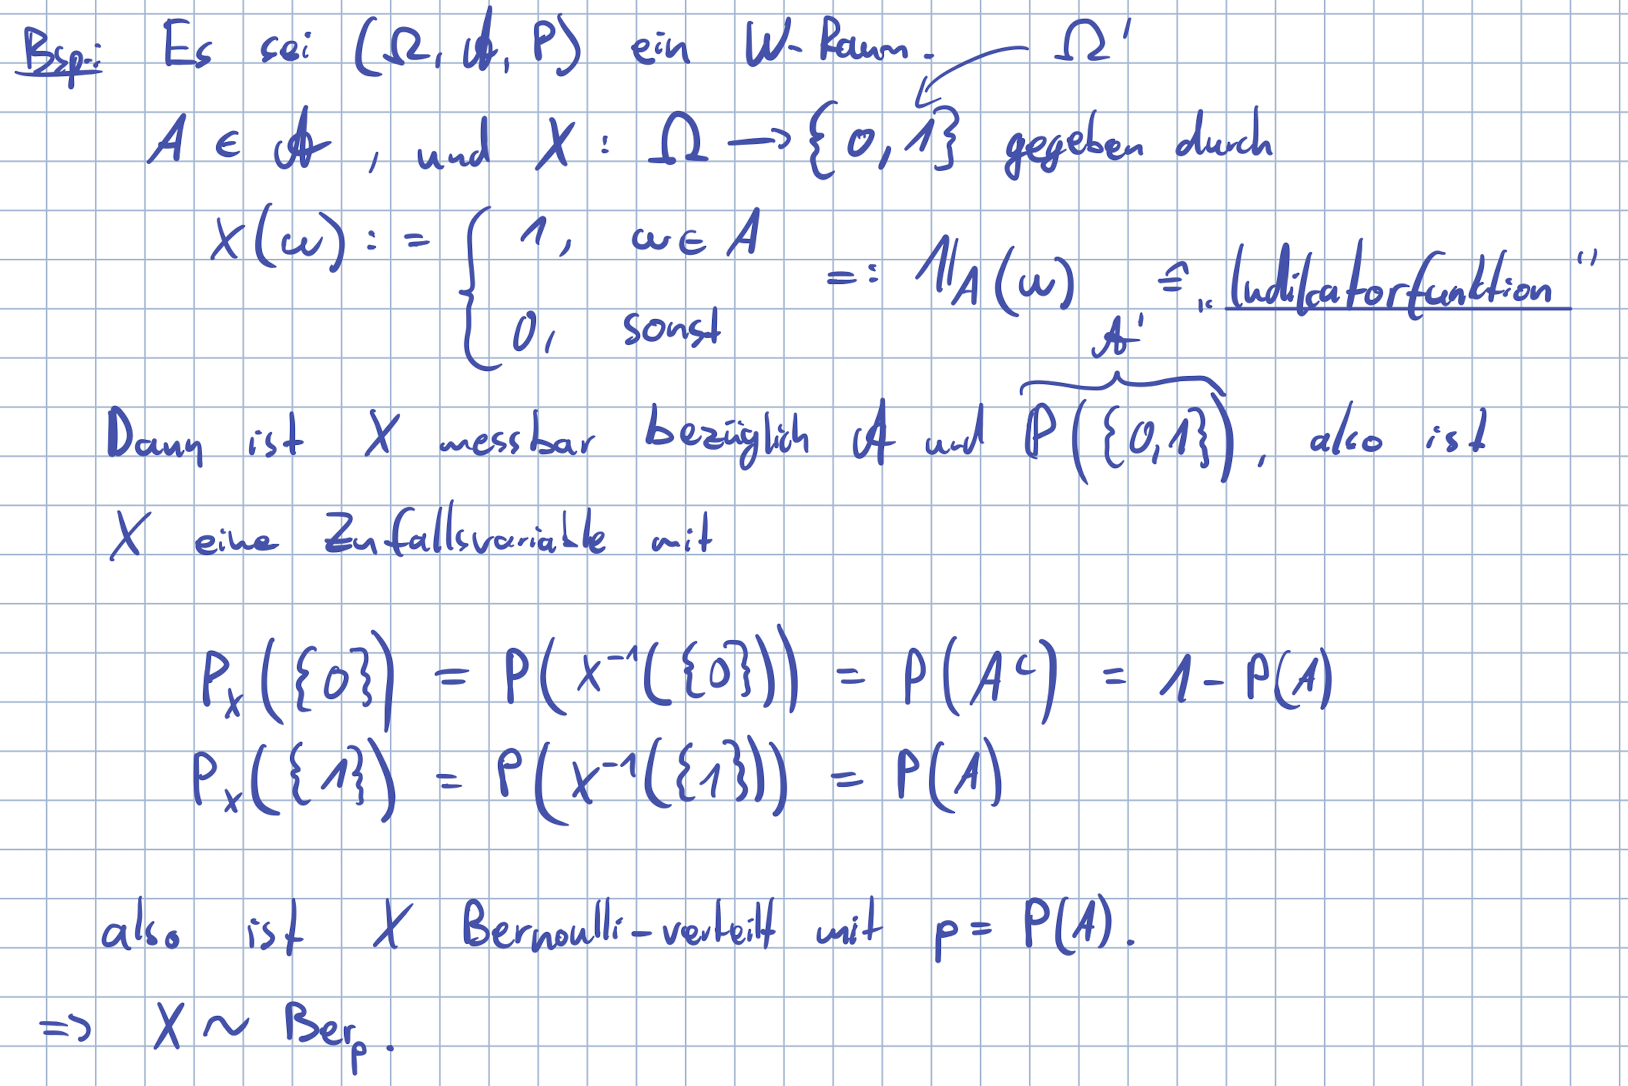 Bsp.: Es sei (Ω, 𝒜, P) ein W-Raum. Ω'
A ∈ 𝒜, und X : Ω → {0, 1} gegeben durch
X(ω) := { 1, ω ∈ A
0, sonst
=: 𝟙_A(ω) ≙ „Indikatorfunktion"
𝒜'
Dann ist X messbar bezüglich 𝒜 und P({0,1}), also ist
X eine Zufallsvariable mit
P_X({0}) = P(X⁻¹({0})) = P(Aᶜ) = 1 - P(A)
P_X({1}) = P(X⁻¹({1})) = P(A)
also ist X Bernoulli-verteilt mit p = P(A).
=> X ~ Ber_p.